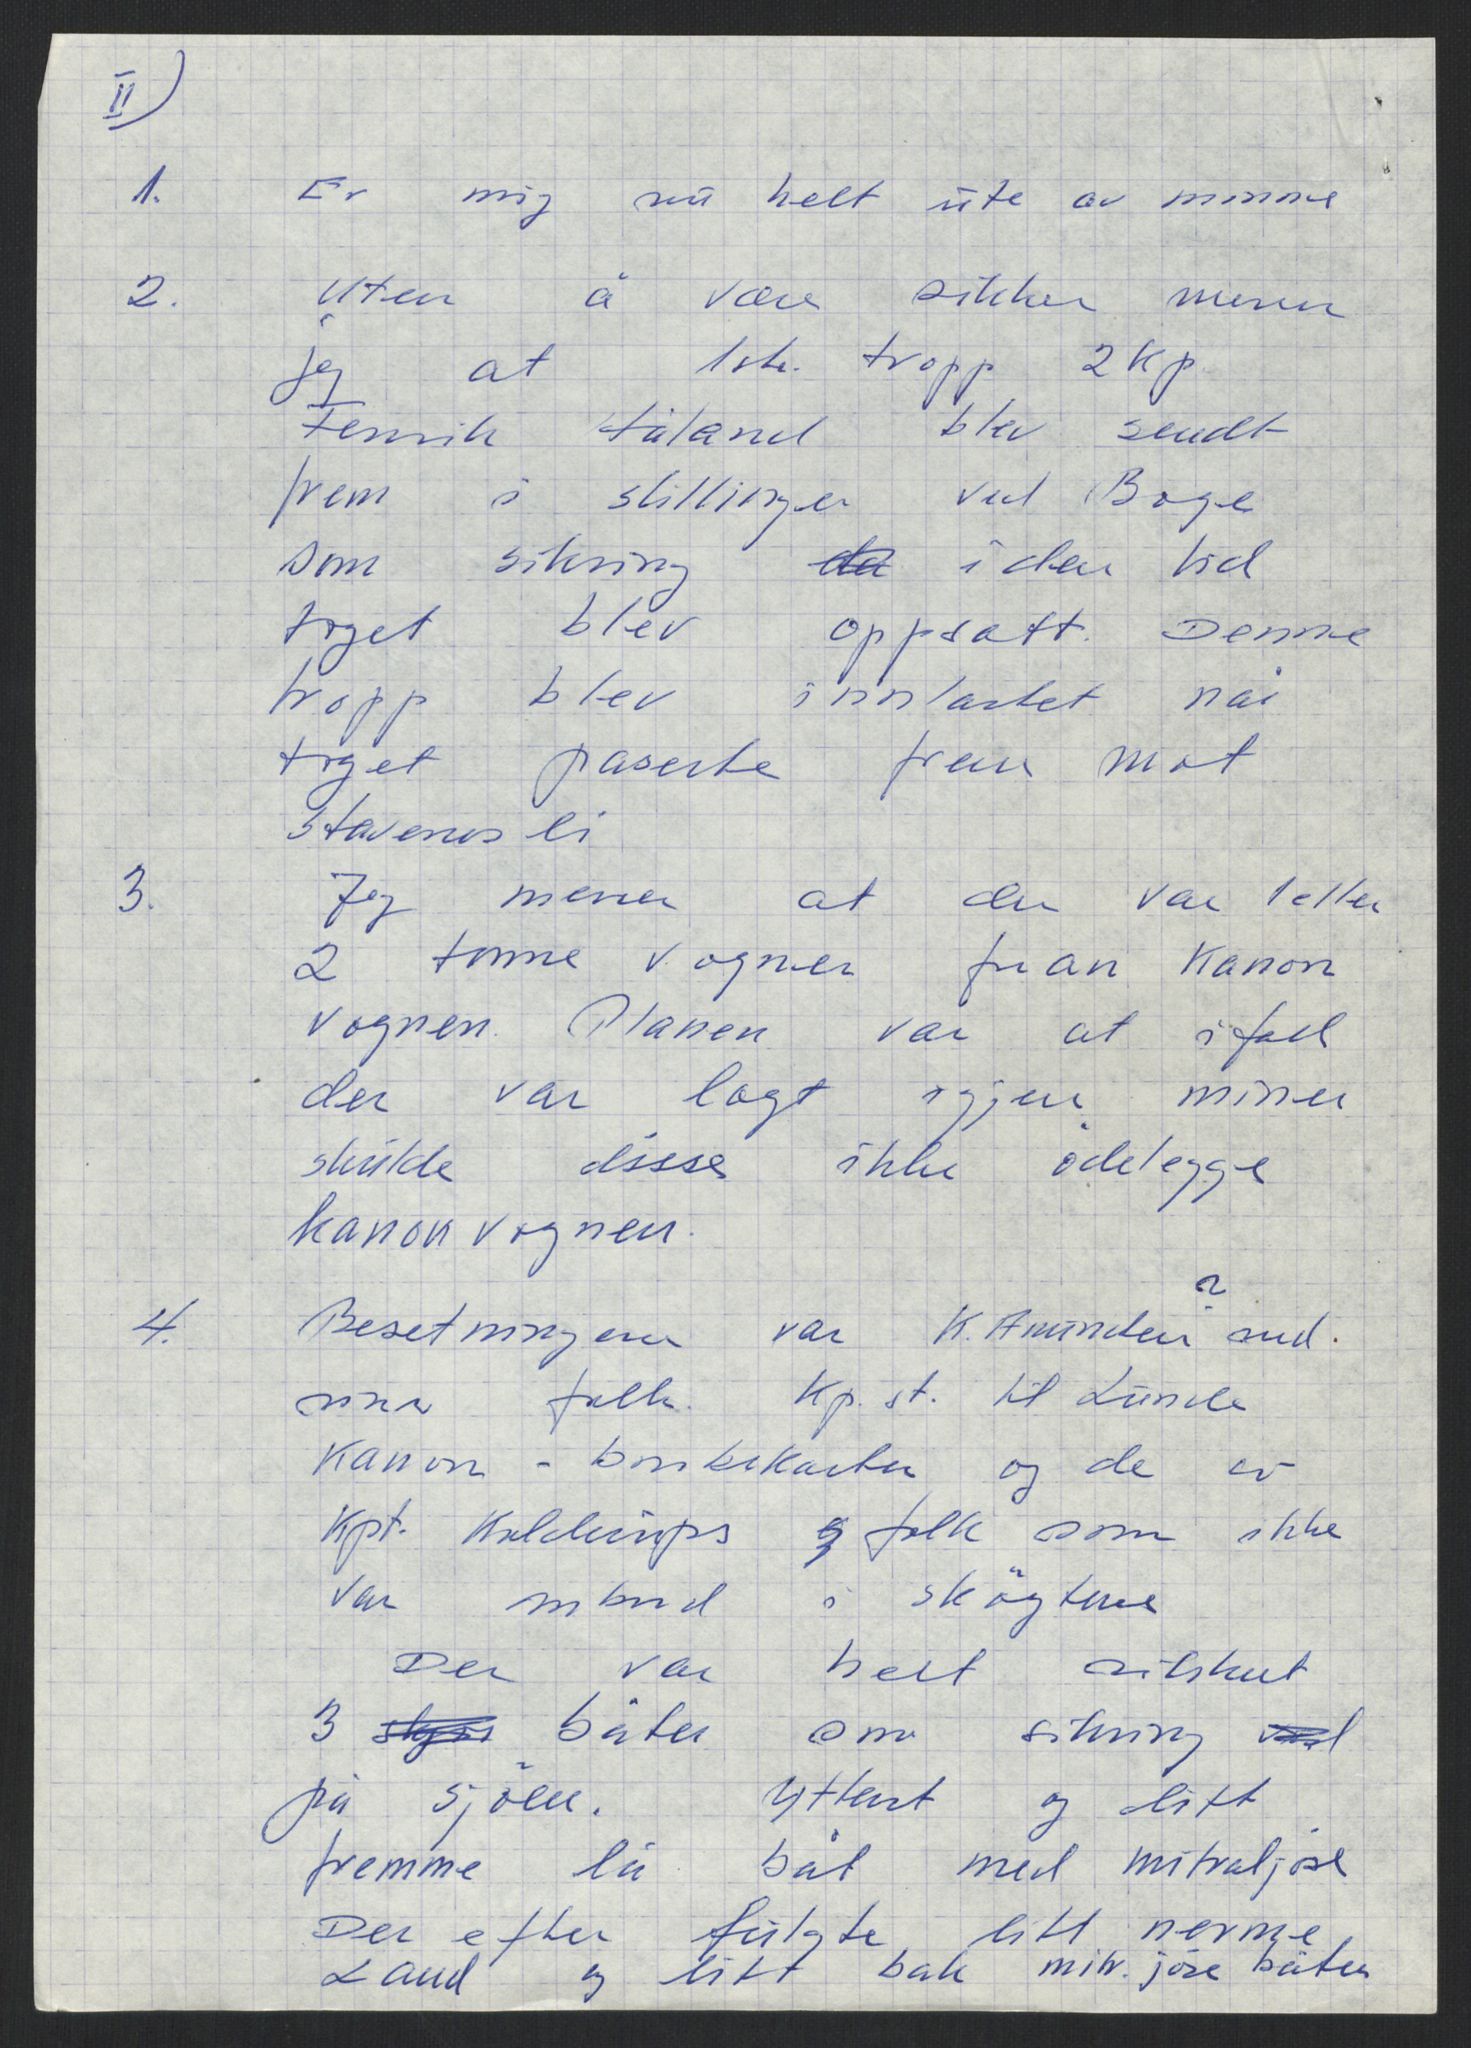 II)
1. Er mig nu helt ute av minne
2. Uten å være sikker mener
jeg at 1ste. tropp 2 Kp.
Fenrik Håland blev sendt
frem i stillinger ved Boge
som sikring da i den tid
toget blev oppsatt. Denne
tropp blev innlastet når
toget paserte frem mot
Stavenesli
3. Jeg mener at der var 1 eller
2 tomme vogner foran Kanon
vognen. Planen var at ifall
der var lagt igjen miner
skulde disse ikke ödelegge
kanonvognen.
4. Besetningen var K. Amunden ? med.
sine folk. Kp. st. til Lunde
Kanon - bombekaster og de av
Kpt. Kaldrups folk som ikke
var ombord i sköytene
Der var helt utskut
3 båter som sikring
på sjöen. Ytterst og litt
fremme lå båt med mitraljöse
Der efter fulgte litt nerme
Land og litt bak mitr. jöse båten